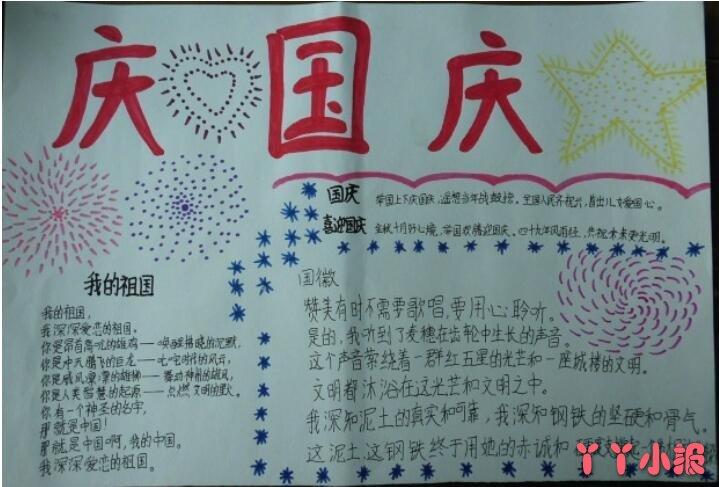 庆国庆
国庆 举国上下庆国庆，遥想当年战鼓擂。全国人民齐祝兴，普出儿女爱国心。
喜迎国庆 金秋十月好心境，举国欢腾迎国庆。四十九年风雨经，共祝未来更光明。
我的祖国
我的祖国，
我深深爱恋的祖国。
你是昂首高吭的雄鸡——唤醒拂晓的沉默，
你是冲天腾飞的巨龙——叱咤时代的风云，
你是威风凛凛的雄狮——舞动神州的雄风，
你是人类智慧的起源——点燃文明的星火。
你有一个神圣的名字，
那就是中国！
那就是中国啊，我的中国。
我深深爱恋的祖国。
国徽
赞美有时不需要歌唱，要用心聆听。
是的，我听到了麦穗在齿轮中生长的声音。
这个声音萦绕着一群红五星的光芒和一座城楼的文明。
文明都沐浴在这光芒和文明之中。
我深知泥土的真实和可靠，我深知钢铁的坚硬和骨气。
这泥土这钢铁终于用她的赤诚和
丫丫小报